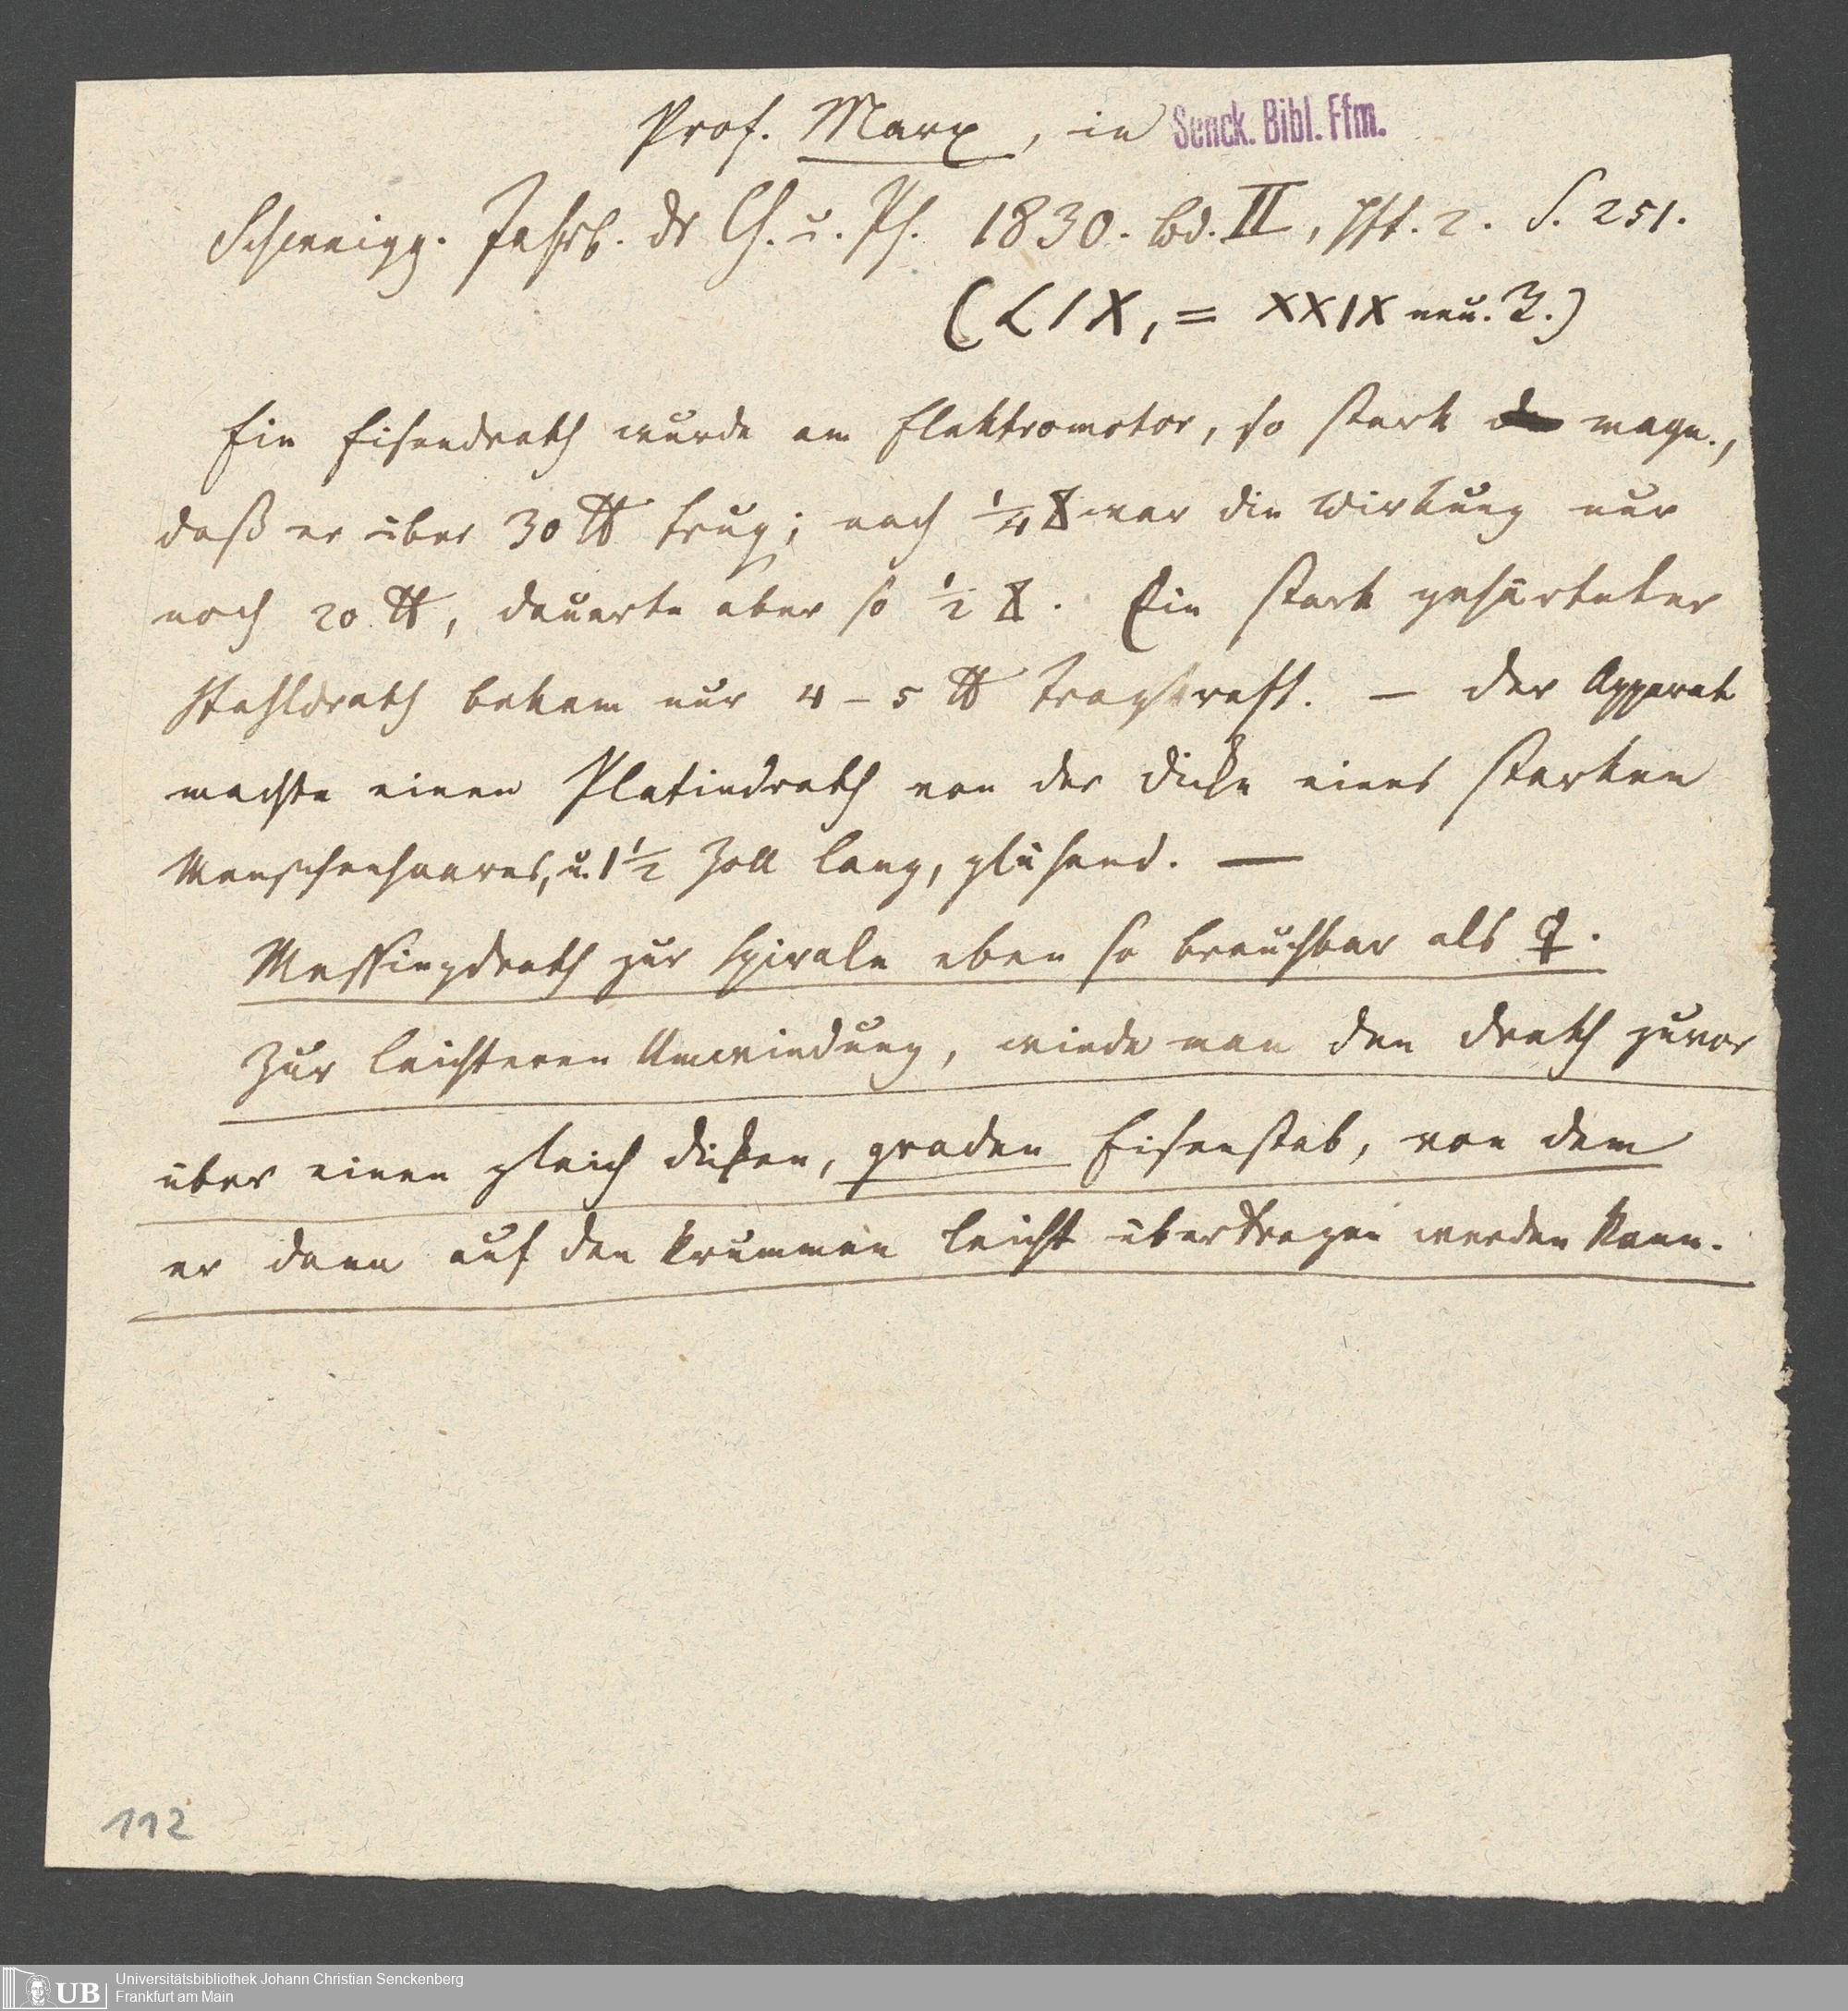 Prof. Marx, in
Senck. Bibl. Ffm.
Schweigg. Jahrb. dr Ch. u. Ph. 1830. Bd. II, Hft. 2. S. 251.
(LIX, = XXIX neu. R.)
Ein Eisendrath wurde am Elektromotor, so stark magn.,
daß er über 30 ℔ trug; nach ¼ war die Wirkung nur
noch 20 ℔, dauerte aber so ½. Ein stark gehärteter
Stahldrath bekam nur 4–5 ℔ Tragkraft. — Der Apparat
machte einen Platindrath von der Dicke eines starken
Menschenhaares, u. 1½ Zoll lang, glühend. —
Messingdrath zur Spirale eben so brauchbar als ♀.
Zur leichteren Umwindung, winde man den Drath zuvor
über einen gleich dicken, graden Eisenstab, von dem
er dann auf den krummen leicht übertragen werden kann.
112
UB
Universitätsbibliothek Johann Christian Senckenberg
Frankfurt am Main